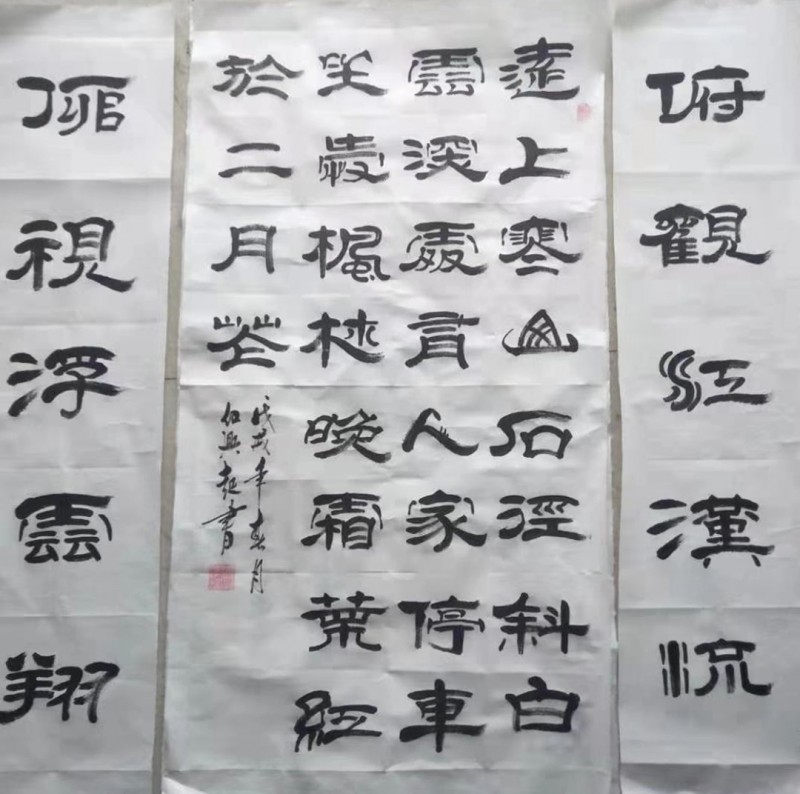 俯觀江漢流
遠上寒山石徑斜白
雲深處有人家停車
坐愛楓林晚霜葉紅
於二月花
戊戌年春月
書
仰視浮雲翔